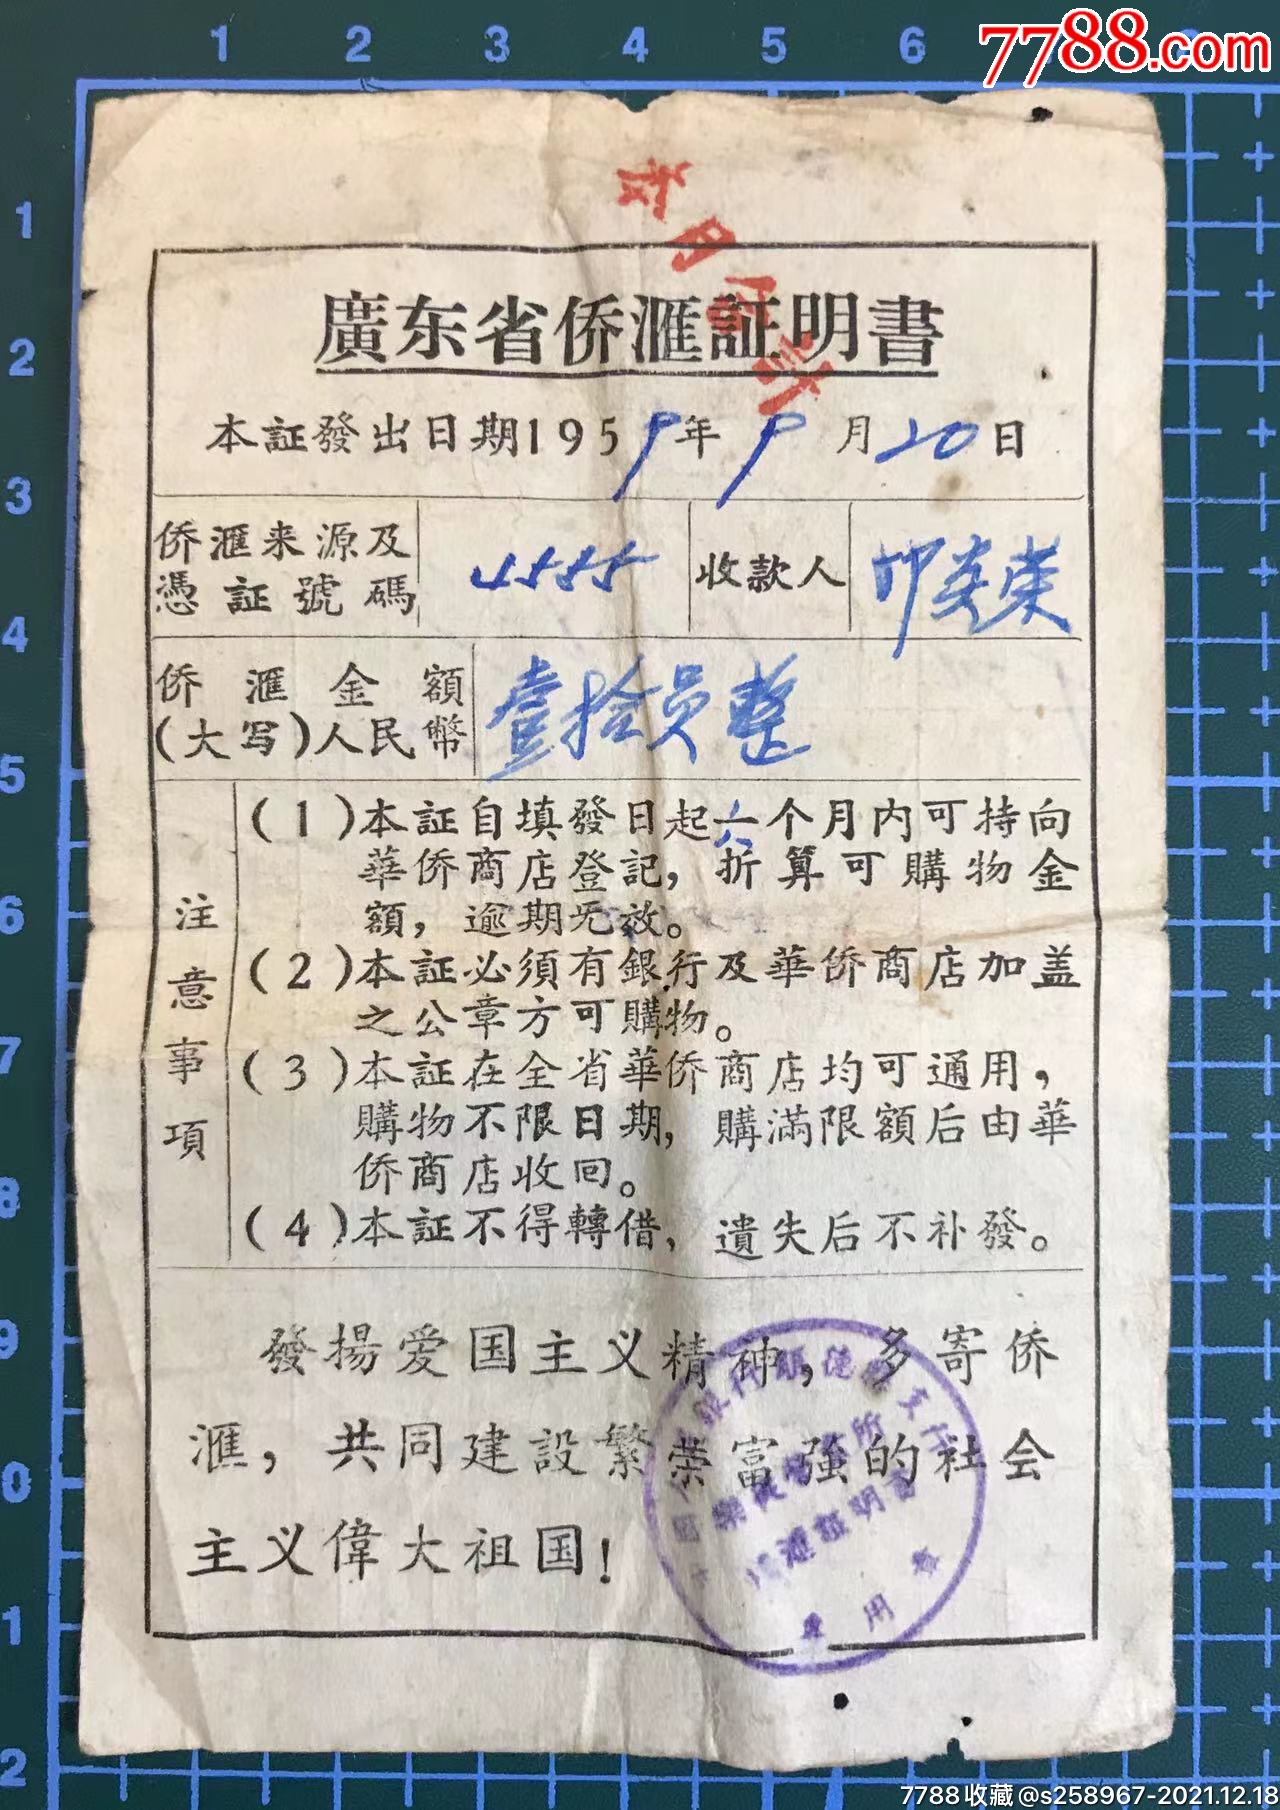 7788.com
廣东省侨滙証明書
本証發出日期1959年9月20日
侨滙来源及
憑証號碼
4585
收款人
侨滙金額
(大写)人民幣
壹拾员整
注意事項
(1)本証自填發日起六个月内可持向
華侨商店登記,折算可購物金
額,逾期无效。
(2)本証必須有銀行及華侨商店加盖
之公章方可購物。
(3)本証在全省華侨商店均可通用,
購物不限日期,購滿限額后由華
侨商店收回。
(4)本証不得轉借,遺失后不补發。
發揚爱国主义精神,多寄侨
滙,共同建設繁荣富強的社会
主义偉大祖国!
專用章
7788收藏@s258967-2021.12.18